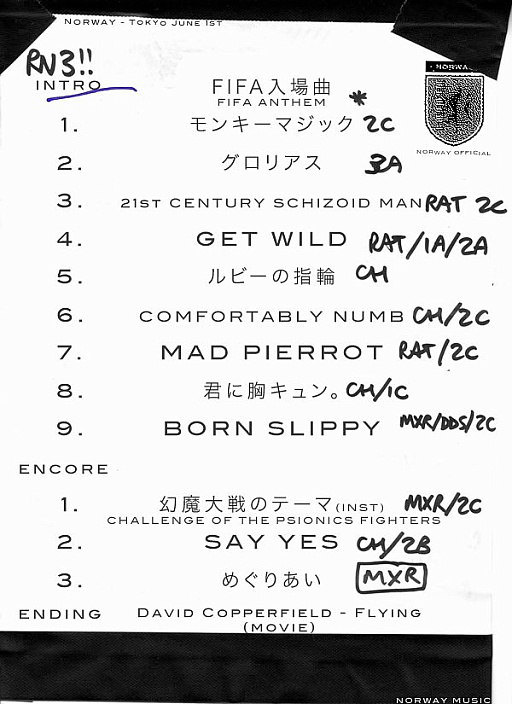 NORWAY - TOKYO JUNE 1ST
RN3!!
NORWAY
INTRO FIFA入場曲
FIFA ANTHEM *
1. モンキーマジック 2C
NORWAY OFFICIAL
2. グロリアス 3A
3. 21ST CENTURY SCHIZOID MAN RAT 2C
4. GET WILD RAT/1A/2A
5. ルビーの指輪 CH
6. COMFORTABLY NUMB CH/2C
7. MAD PIERROT RAT/2C
8. 君に胸キュン。 CH/1C
9. BORN SLIPPY MXR/DDS/2C
ENCORE
1. 幻魔大戦のテーマ(INST) MXR/2C
CHALLENGE OF THE PSIONICS FIGHTERS
2. SAY YES CH/2B
3. めぐりあい MXR
ENDING DAVID COPPERFIELD - FLYING
(MOVIE)
NORWAY MUSIC